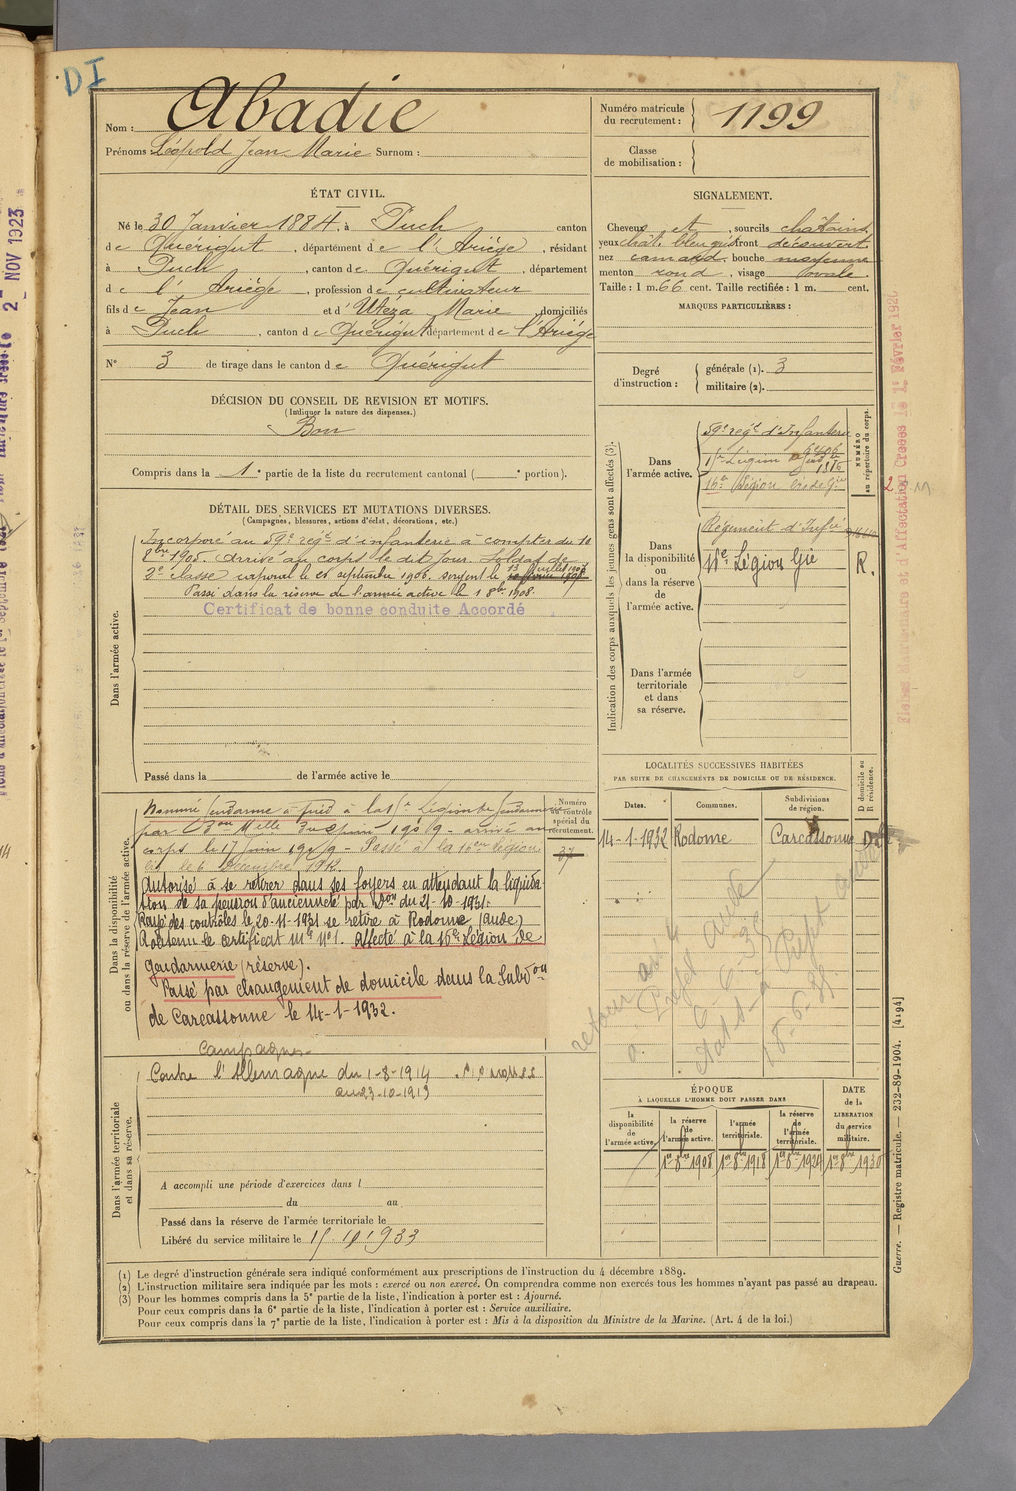 DI
Nom : Abadie
Prénoms : Léopold Jean Marie Surnom :
Numéro matricule du recrutement : 1199
Classe de mobilisation :
ÉTAT CIVIL.
Né le 30 Janvier 1884, à Puch canton
de Quérigut, département de l'Ariège, résidant
à Puch, canton de Quérigut, département
de l'Ariège, profession de cultivateur
fils de Jean et d' Utéza Marie domiciliés
à Puch, canton de Quérigut département de l'Ariège
N° 3 de tirage dans le canton de Quérigut
SIGNALEMENT.
Cheveux et, sourcils châtains
yeux chât. front découvert
nez camard, bouche moyenne
menton rond, visage ovale.
Taille : 1 m. 66 cent. Taille rectifiée : 1 m. cent.
MARQUES PARTICULIÈRES :
Degré d'instruction : générale (1). 3
militaire (2).
DÉCISION DU CONSEIL DE REVISION ET MOTIFS.
(Indiquer la nature des dispenses.)
Bon
Compris dans la 1e partie de la liste du recrutement cantonal ( e portion).
DÉTAIL DES SERVICES ET MUTATIONS DIVERSES.
(Campagnes, blessures, actions d'éclat, décorations, etc.)
Dans l'armée active.
Incorporé au 59e regt d'infanterie à compter du 10
8bre 1905. Arrivé au corps le dit jour. Soldat de
2e classe caporal le 28 septembre 1906, sergent le 13 juillet 1907
Passé dans la réserve de l'armée active le 1 8bre 1908.
Certificat de bonne conduite Accordé
Passé dans la de l'armée active le
Indication des corps auxquels les jeunes gens sont affectés (3).
Dans l'armée active.
59e regt d'Infanterie
16e Légion
NUMÉRO au répertoire du corps.
Dans la disponibilité ou dans la réserve de l'armée active.
Régiment d'Infie
16e Légion Gie
R.
Dans l'armée territoriale et dans sa réserve.
Dans la disponibilité ou dans la réserve de l'armée active.
Nommé Gendarme à pied à la Légion de Gendarmerie
par Don Mlle du 2 juin 1909 - arrivé au
corps le 17 juin 1909 - Passé à la 16e Légion
le 6 Décembre 1912.
Autorisé à se retirer dans ses foyers en attendant la liquida-
tion de sa pension d'ancienneté par Don du 21-10-1931.
Rayé des contrôles le 20-11-1931 se retire à Rodome (Aude)
A obtenu le certificat Mle N°1. Affecté à la 16e Légion de
Gendarmerie (réserve).
Passé par changement de domicile dans la Subdon
de Carcassonne le 14-1-1932.
Numéro au contrôle spécial du recrutement.
37
LOCALITÉS SUCCESSIVES HABITÉES
PAR SUITE DE CHANGEMENTS DE DOMICILE OU DE RÉSIDENCE.
Dates. Communes. Subdivisions de région. D domicile ou R résidence.
14-1-1932 Rodome Carcassonne D
Campagnes
Dans l'armée territoriale et dans sa réserve.
Contre l'Allemagne du 1-8-1914
au 23-10-1919
A accompli une période d'exercices dans l
du au
Passé dans la réserve de l'armée territoriale le
Libéré du service militaire le 15-10-1933
ÉPOQUE
À LAQUELLE L'HOMME DOIT PASSER DANS
la disponibilité de l'armée active.
la réserve de l'armée active.
l'armée territoriale.
la réserve de l'armée territoriale.
DATE de la LIBÉRATION du service militaire.
1er 8bre 1908 1er 8bre 1918 1er 8bre 1924 1er 8bre 1930
(1) Le degré d'instruction générale sera indiqué conformément aux prescriptions de l'instruction du 4 décembre 1889.
(2) L'instruction militaire sera indiquée par les mots : exercé ou non exercé. On comprendra comme non exercés tous les hommes n'ayant pas passé au drapeau.
(3) Pour les hommes compris dans la 5e partie de la liste, l'indication à porter est : Ajourné.
Pour ceux compris dans la 6e partie de la liste, l'indication à porter est : Service auxiliaire.
Pour ceux compris dans la 7e partie de la liste, l'indication à porter est : Mis à la disposition du Ministre de la Marine. (Art. 4 de la loi.)
Guerre. — Registre matricule. — 232-89-1904. [4194]
2 - NOV 1923